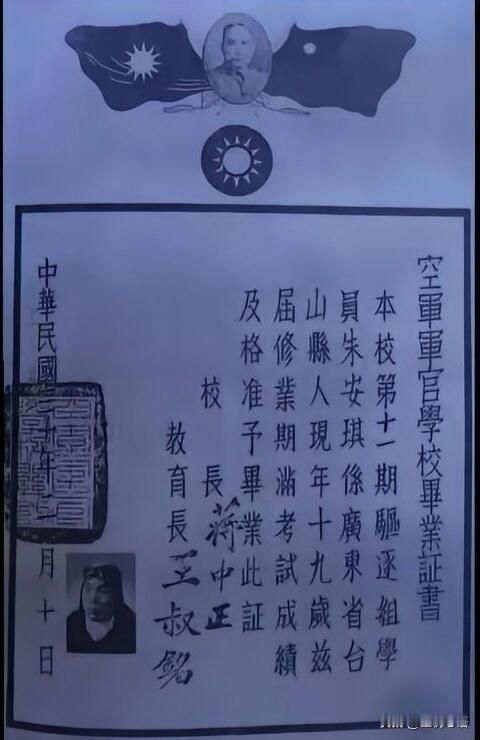 空軍軍官學校畢業証書
本校第十一期驅逐組學
員朱安琪係廣東省台
山縣人現年十九歲茲
屆修業期滿考試成績
及格准予畢業此証
校長蔣中正
教育長王叔銘
中華民國三十年二月十日